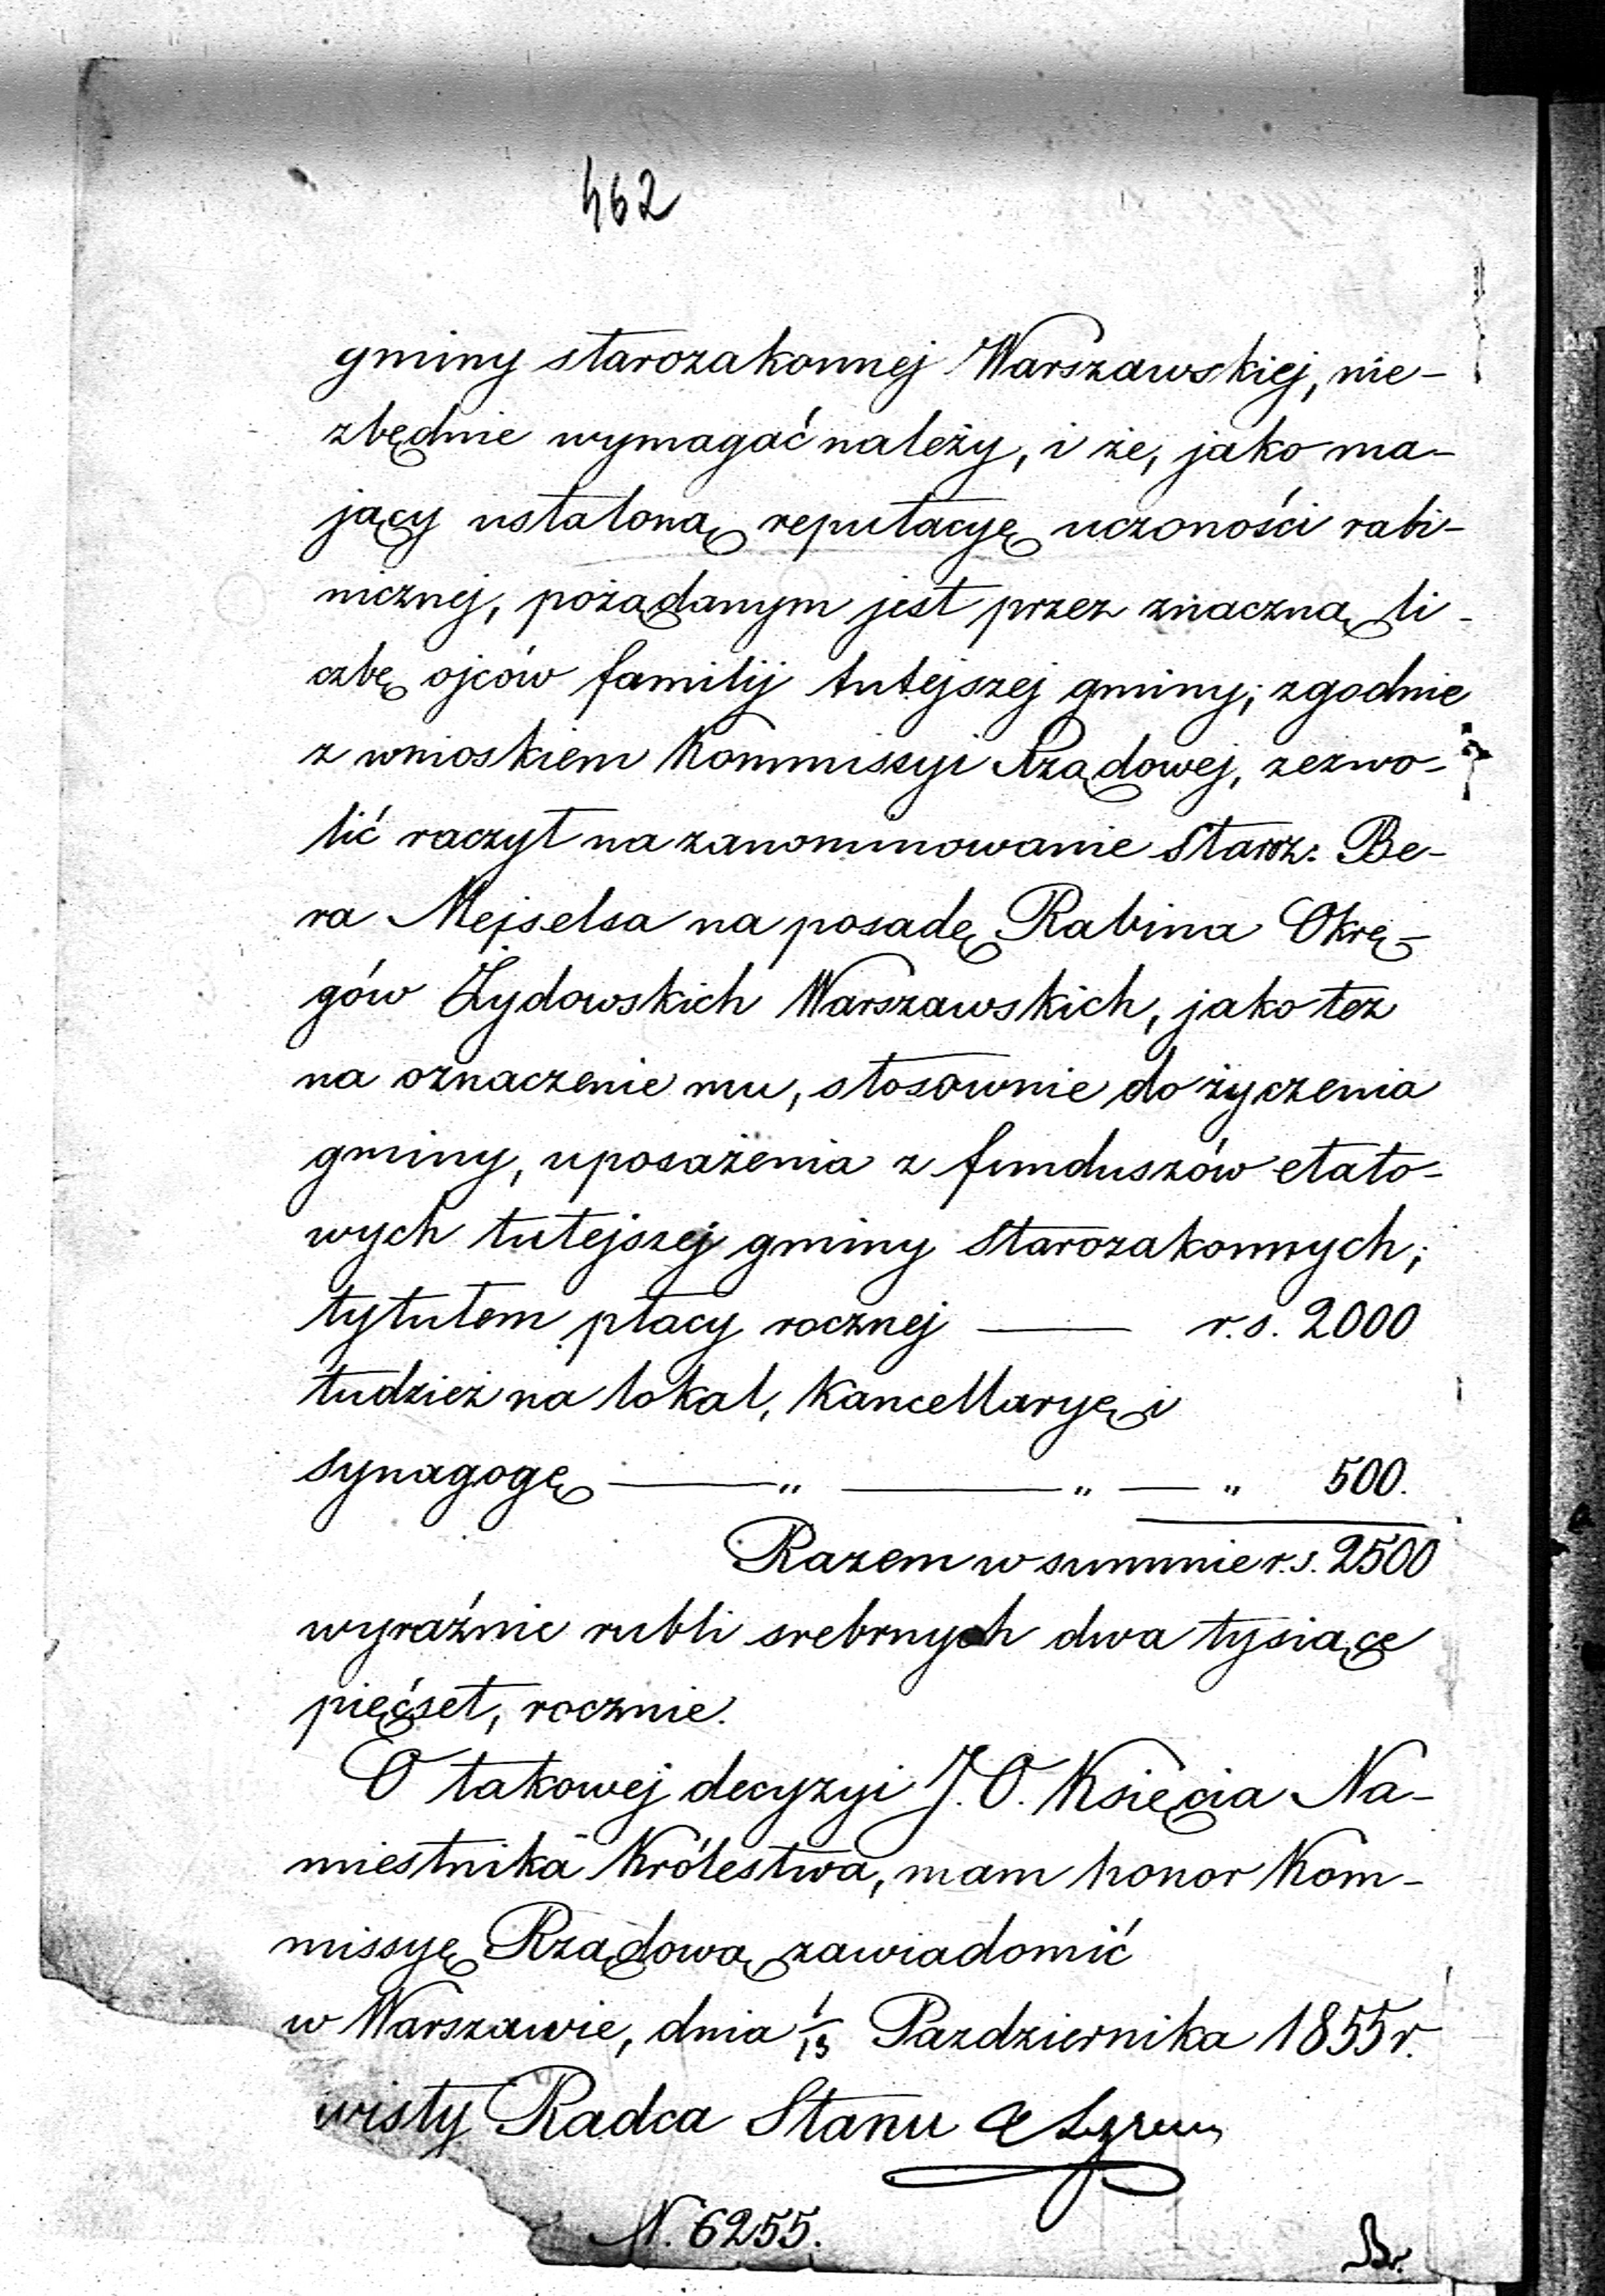 462
gminy starozakonnej Warszawskiej, nie-
zbędnie wymagać należy, i że, jako ma-
jący ustaloną reputacyę uczoności rabi-
nicznej, pożądanym jest przez znaczną li-
czbę ojców familij tutejszej gminy; zgodnie
z wnioskiem Kommissyi Rządowej, zezwo-
lić raczył na zanominowanie Staroz: Be-
ra Mejselsa na posadę Rabina Okrę-
gów Żydowskich Warszawskich, jako tez
na oznaczenie mu, stosownie do życzenia
gminy, uposażenia z funduszów etato-
wych tutejszej gminy Starozakonnych;
tytułem płacy rocznej —— r.s. 2000
tudzież na lokal, Kancellaryę i
synagogę —— „ —— „ — „ 500.
Razem w summie r.s. 2500
wyraźnie rubli srebrnych dwa tysiące
pięćset, rocznie.
O takowej decyzyi J. O. Księcia Na-
miestnika Królestwa, mam honor Kom-
missyę Rządową zawiadomić
w Warszawie, dnia 1/13 Pazdziernika 1855 r.
wisty Radca Stanu
N. 6255.